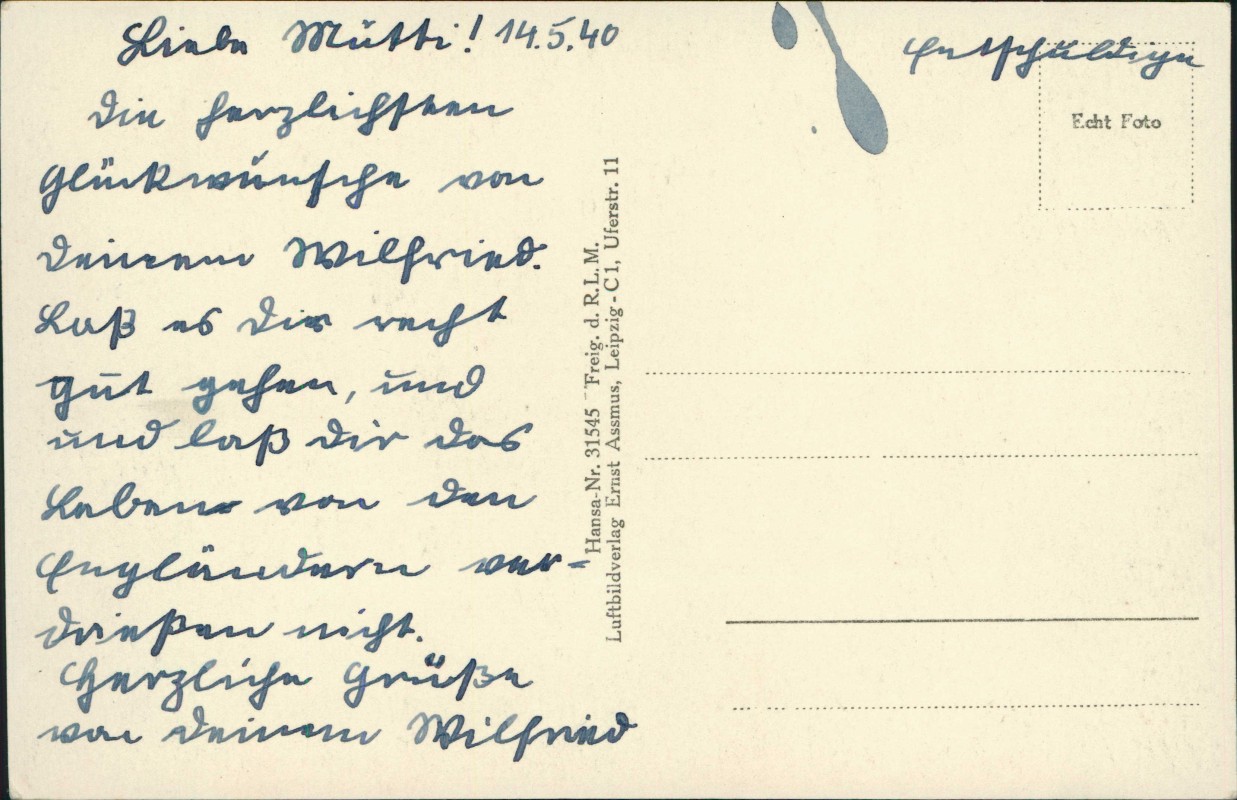 Liebe Mutti! 14.5.40
Die herzlichsten
Glückwünsche von
deinem Wilfried.
Laß es dir recht
gut gehen, und
und laß dir das
Leben von den
Engländern ver=
drießen nicht.
Herzliche Grüße
von deinem Wilfried
Entschuldige
Echt Foto
Hansa-Nr. 31545 Freig. d. R.L.M.
Luftbildverlag Ernst Assmus, Leipzig-C1, Uferstr. 11